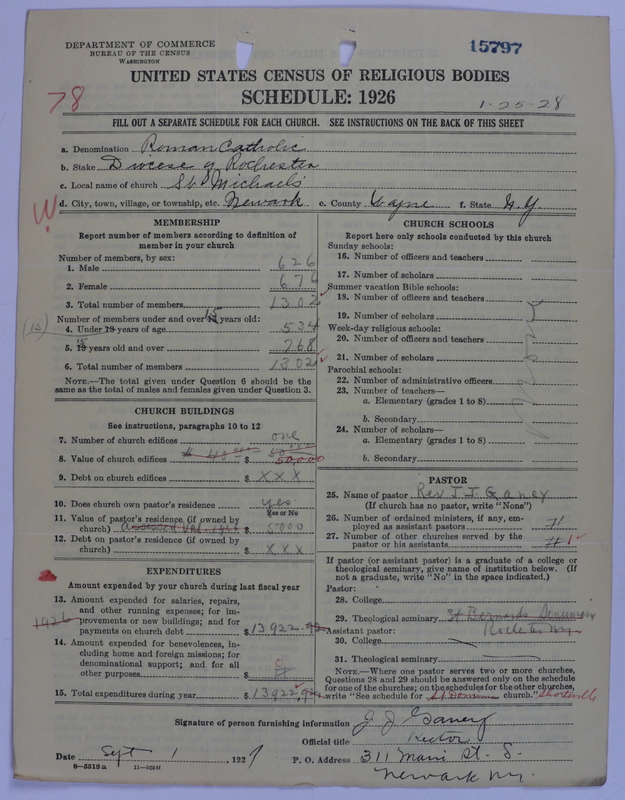 DEPARTMENT OF COMMERCE
BUREAU OF THE CENSUS
WASHINGTON
15797
UNITED STATES CENSUS OF RELIGIOUS BODIES
SCHEDULE: 1926
78
1-25-28
FILL OUT A SEPARATE SCHEDULE FOR EACH CHURCH. SEE INSTRUCTIONS ON THE BACK OF THIS SHEET
a. Denomination Roman Catholic
b. Stake Diocese of Rochester
c. Local name of church St Michaels
d. City, town, village, or township, etc. Newark e. County Wayne f. State N.Y.
MEMBERSHIP
Report number of members according to definition of member in your church
Number of members, by sex:
1. Male 626
2. Female 676
3. Total number of members 1302
Number of members under and over 13 years old:
(13)
4. Under 13 years of age 534
5. 13 years old and over 768
6. Total number of members 1302
NOTE.—The total given under Question 6 should be the
same as the total of males and females given under Question 3.
CHURCH BUILDINGS
See instructions, paragraphs 10 to 12
7. Number of church edifices one
8. Value of church edifices $ 50,000
9. Debt on church edifices $ XXX
10. Does church own pastor's residence yes
Yes or No
11. Value of pastor's residence (if owned by
church) $ 5000
12. Debt on pastor's residence (if owned by
church) $ XXX
EXPENDITURES
Amount expended by your church during last fiscal year
13. Amount expended for salaries, repairs,
and other running expenses; for im-
1926
provements or new buildings; and for
payments on church debt $ 13922.92
14. Amount expended for benevolences, in-
cluding home and foreign missions; for
denominational support; and for all
other purposes $
15. Total expenditures during year $ 13922.92
CHURCH SCHOOLS
Report here only schools conducted by this church
Sunday schools:
16. Number of officers and teachers
17. Number of scholars
Summer vacation Bible schools:
18. Number of officers and teachers
19. Number of scholars
Week-day religious schools:
20. Number of officers and teachers
21. Number of scholars
Parochial schools:
22. Number of administrative officers
23. Number of teachers—
a. Elementary (grades 1 to 8)
b. Secondary
24. Number of scholars—
a. Elementary (grades 1 to 8)
b. Secondary
PASTOR
25. Name of pastor Rev J J Ganey
(If church has no pastor, write "None")
26. Number of ordained ministers, if any, em-
ployed as assistant pastors
27. Number of other churches served by the
pastor or his assistants 1
If pastor (or assistant pastor) is a graduate of a college or
theological seminary, give name of institution below. (If
not a graduate, write "No" in the space indicated.)
Pastor:
28. College
29. Theological seminary St Bernards Seminary
Assistant pastor: Rochester N.Y.
30. College
31. Theological seminary
NOTE.—Where one pastor serves two or more churches,
Questions 28 and 29 should be answered only on the schedule
for one of the churches; on the schedules for the other churches,
write "See schedule for church." Shortsville
Signature of person furnishing information J. J. Ganey
Official title Rector
Date Sept 1, 1927 P. O. Address 311 Main St. S.
8-5518a
Newark N.Y.